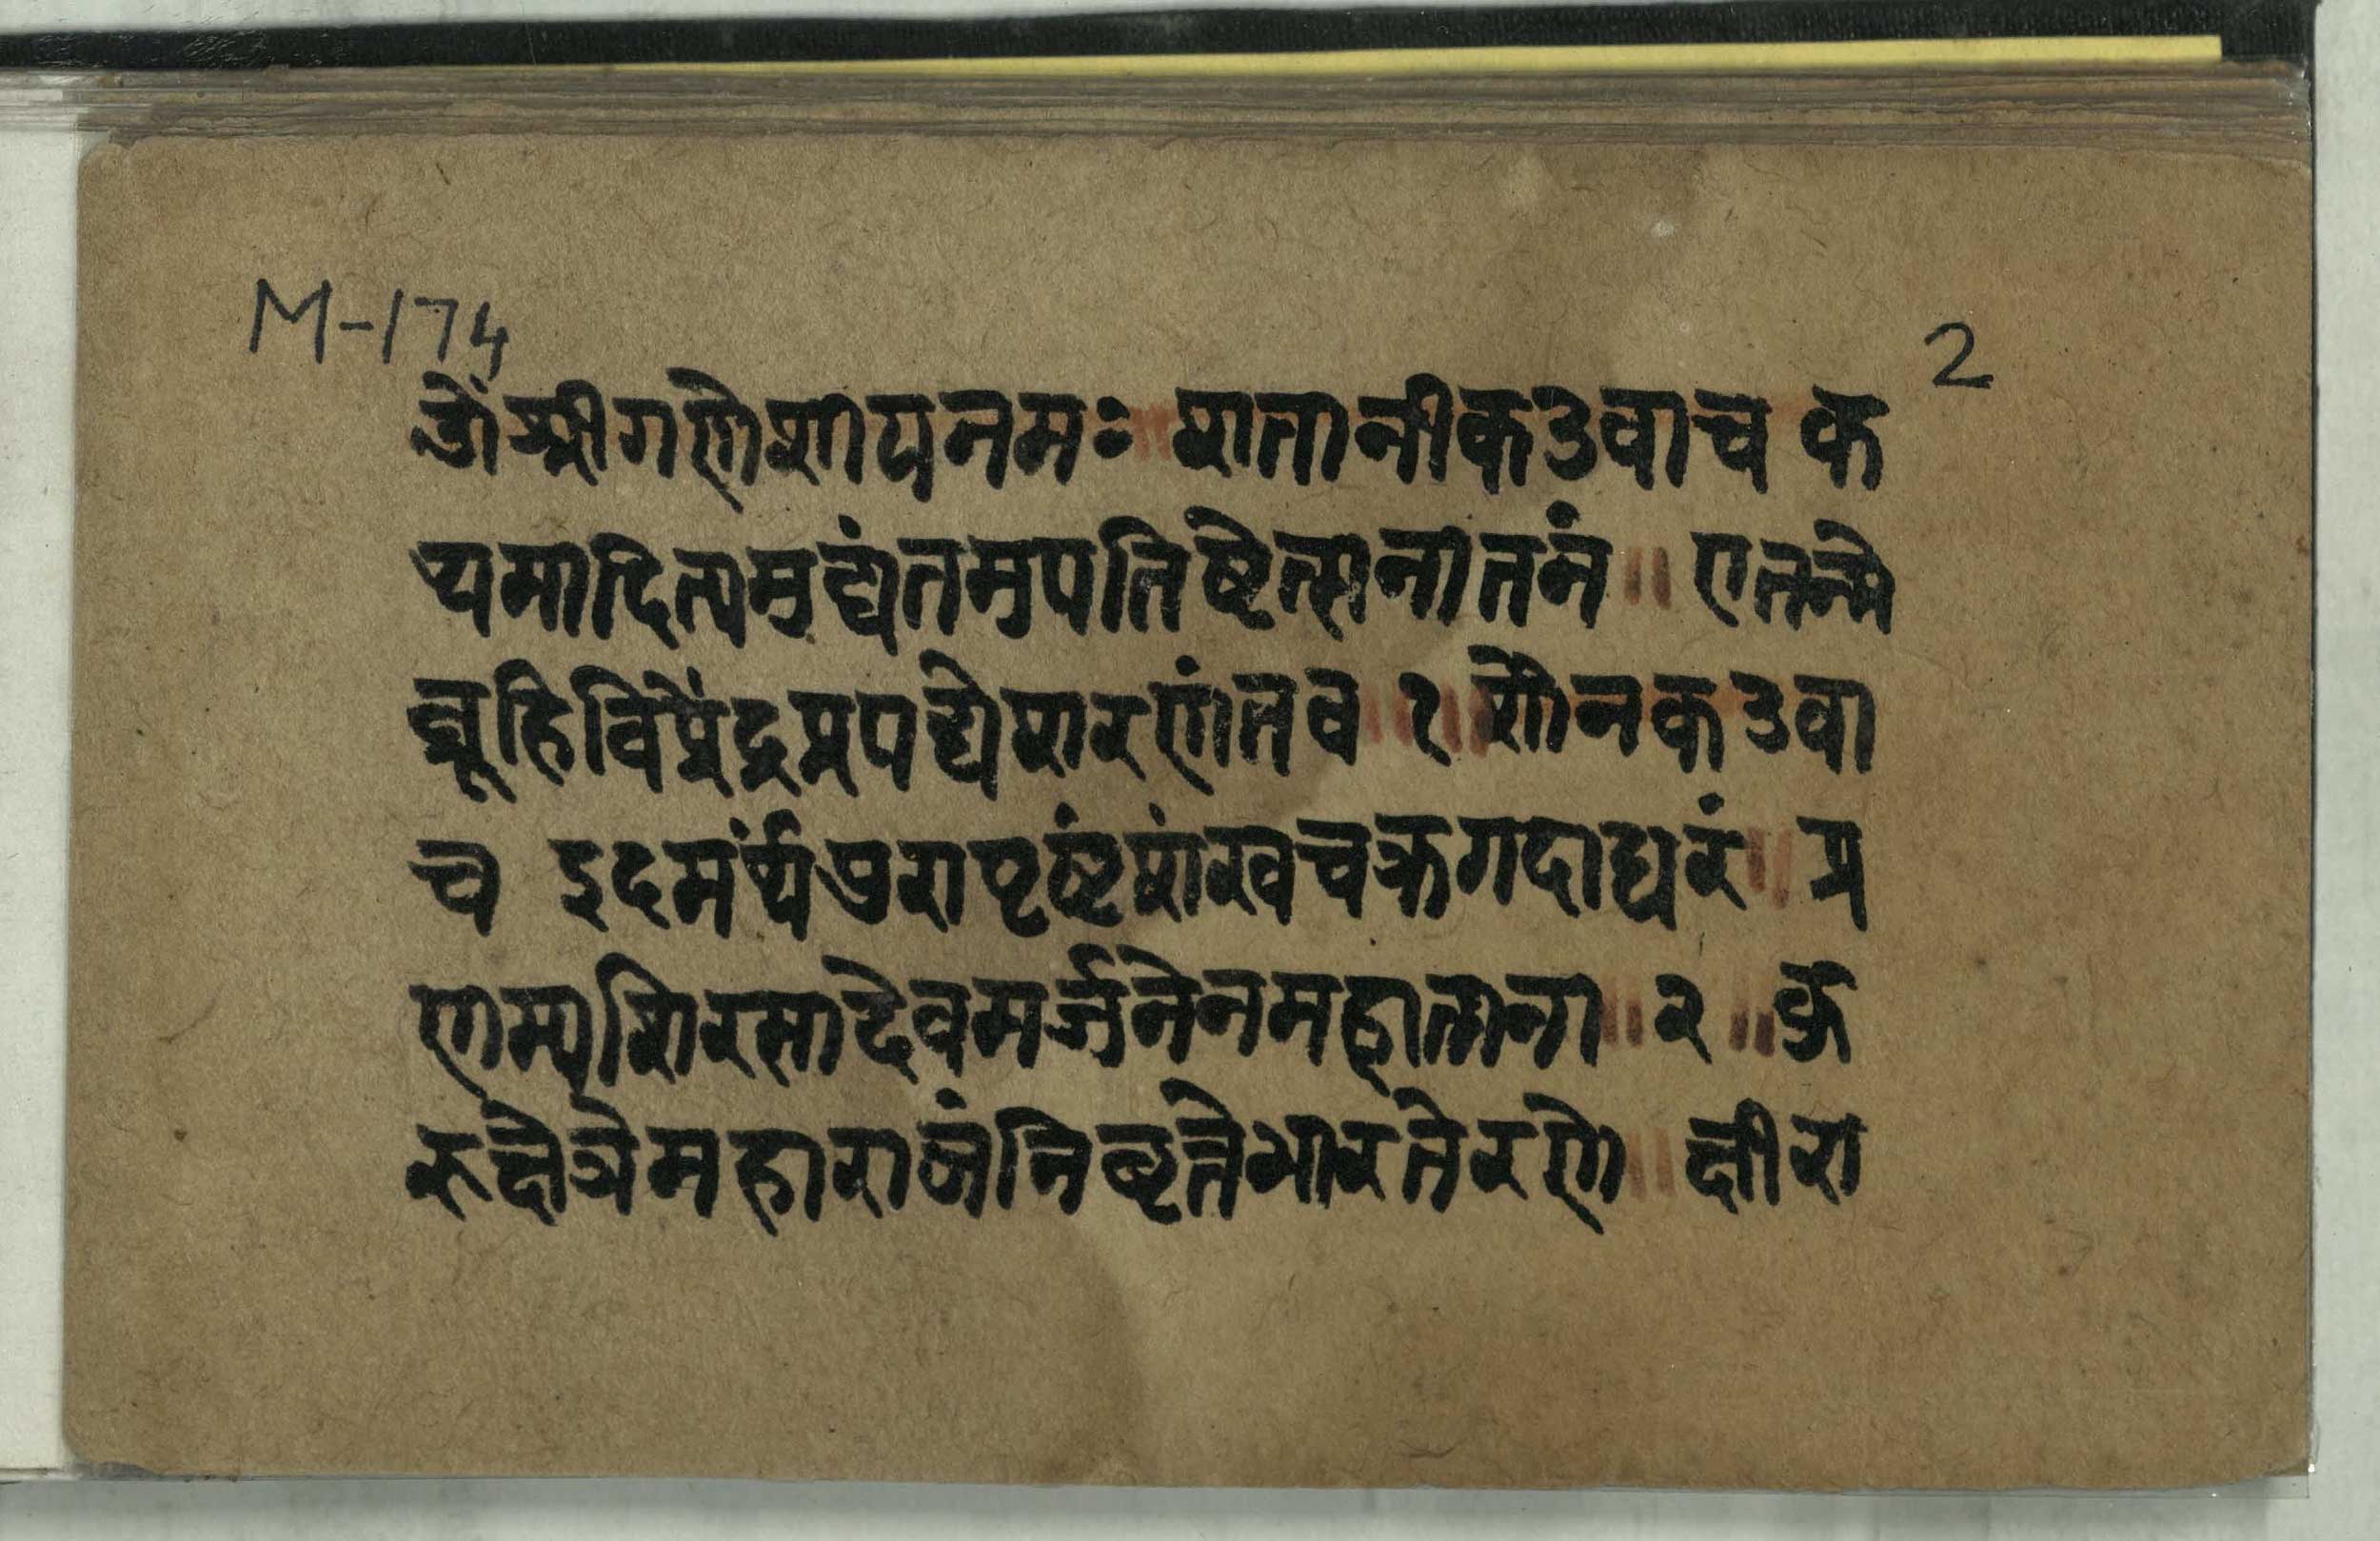 M-174
2
ॐ श्रीगणेशायनमः ॥ शतानीकउवाच क
थमादित्यमुद्यंतमुपतिष्टेत्सनातनं ॥ एतन्मे
ब्रूहिविप्रेंद्रप्रपद्येशरणंतव ॥ १ ॥ शौनकउवा
च इदमर्थंपुरापृष्टंशंखचक्रगदाधरं ॥ प्र
णम्यशिरसादेवमर्जुनेनमहात्मना ॥ २ ॥ कु
रुक्षेत्रेमहाराजंनिवृत्तेभारतेरणे ॥ क्षीरा